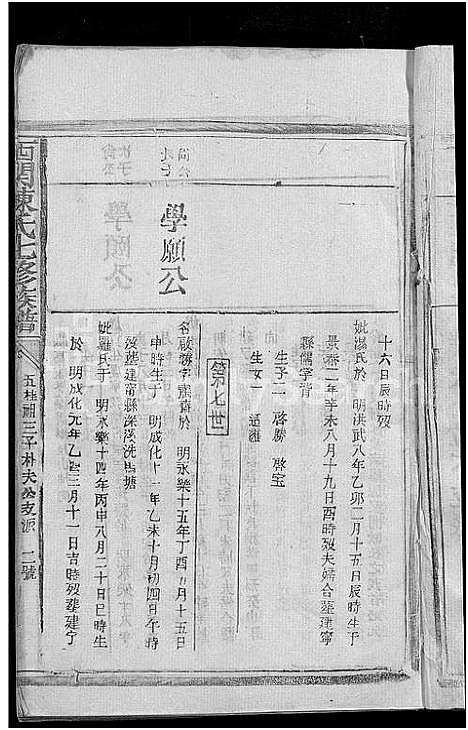 十六日辰時歿
妣湯氏於 明洪武八年乙卯二月十五日辰時生于
景泰二年辛未八月十九日酉時歿夫婦合塟建寧
縣儒學背
生子二 啓勝 啓宝
生女一 適
第七世
學頤公
名啟勝字 於 明永樂十五年丁酉 月十五日
申時生于 明成化十一年乙未十月初四日午時
歿塟建甯縣深溪洗馬塘
妣羅氏于 明永樂十四年丙申八月二十日巳時生
於 明成化元年乙酉三月十一日吉時歿塟建宁
西門陳氏七修族譜
五桂祠三子朴夫公支派 二號